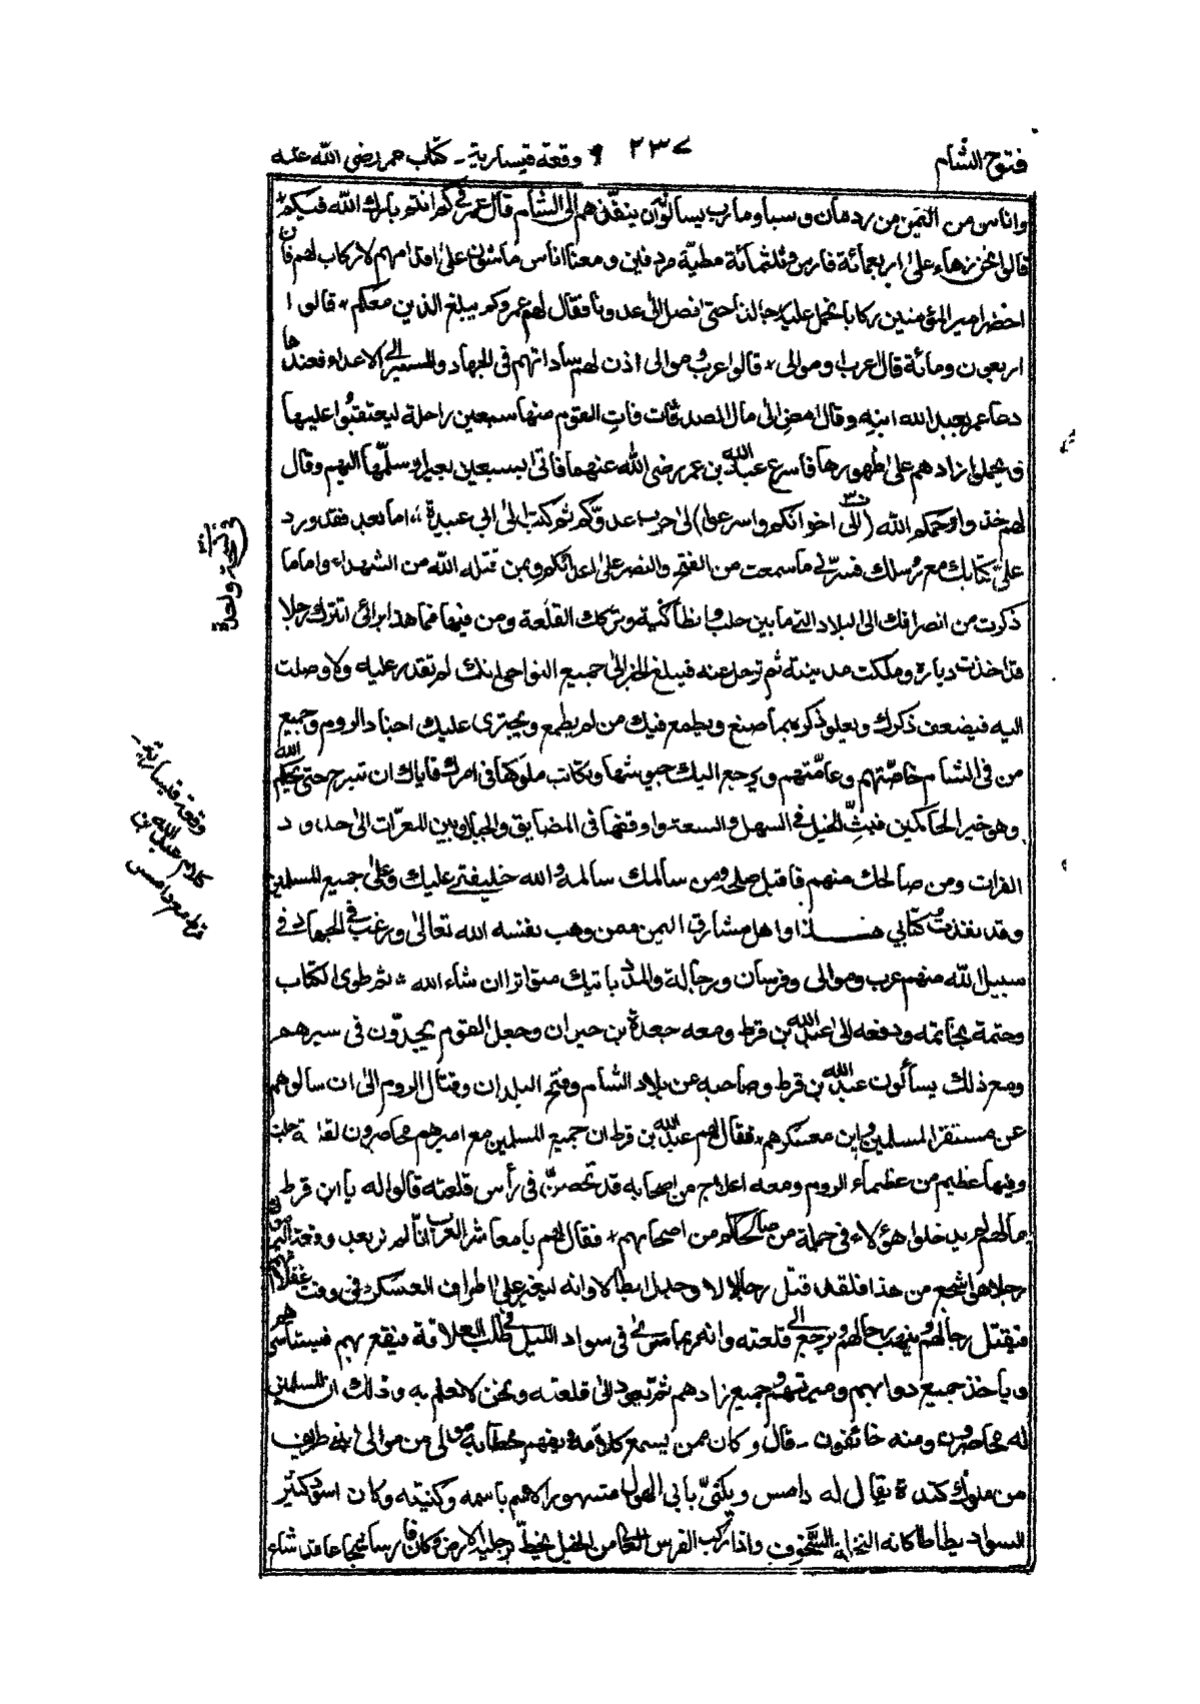 فتوح الشام
٢٣٧
وقعة قيسارية - كتاب عمر رضى الله عنه
واناس من اليمن من ردمان و سبا و مارب يسألون ان ينفذهم الى الشام قال عمر فى كم انتم بارك الله فيكم
قالوا نحن زهاء على اربعمائة فارس وثلثمائة مطية مردفين و معنا اناس ماشون على اقدامهم لا ركاب لهم فان
احضر امير المؤمنين ركابا نحمل عليه رجالنا حتى نصل الى عدونا فقال لهم عمر وكم يبلغ الذين معكم قالوا
اربعون ومائة قال عرب او موالى قالوا عرب و موالى اذن لهم ساداتهم فى الجهاد والمسير الى الاعداء فعندها
دعا عمر بعبد الله ابنه وقال امض الى مال الصدقات فات القوم منها سبعين راحلة ليعتقبوا عليها
ويحملوا زادهم على ظهورها فاسرع عبد الله بن عمر رضى الله عنهما فاتى بسبعين بعيرا وسلمها اليهم وقال
لهم خذوا رحمكم الله (الى اخوانكم واسرعوا) الى حرب عدوكم ثم كتب الى ابي عبيدة اما بعد فقد ورد
على كتابك مع رسلك فسرنى ما سمعت من الفتح والنصر على اعدائكم وبمن قتله الله من الشهداء واما ما
ذكرت من انصرافك الى البلاد التى ما بين حلب وانطاكية وتركك القلعة ومن فيها فما هذا برائى اتترك رجلا
قد اخذت دياره و ملكت مدينته ثم ترحل عنه فيبلغ الخبر الى جميع النواحى انك لم تقدر عليه ولا وصلت
اليه فيضعف ذكرك ويعلو ذكره بما صنع ويطمع فيك من لم يطمع ويجترى عليك اجناد الروم وجميع
من فى الشام خاصتهم وعامتهم ويرجع اليك جيوشها وتكاتب ملوكها فى امرك فاياك ان تبرح حتى يحكم الله
وهو خير الحاكمين فبث الخيل فى السهل والسعة واوقفها فى المضايق والجبال وبين المغرات الى حدود
الفرات ومن صالحك منهم فاقبل صلحه ومن سالمك سالمه والله خليفتى عليك وعلى جميع المسلمين
وقد نفذت كتابي هذا واهل مشارق اليمن ممن وهب نفسه الله تعالى ورغب فى الجهاد فى
سبيل الله منهم عرب وموالى وفرسان ورجالة والمدد ياتيك متواترا ان شاء الله ثم طوى الكتاب
وختمه بخاتمه ودفعه الى عبد الله بن قرط ومعه جعدة بن جبران وجعل القوم يجدون فى سيرهم
ومع ذلك يسألون عبد الله بن قرط وصاحبه عن بلاد الشام وفتح البلدان وقتال الروم الى ان سالوهم
عن مستقر المسلمين واين معسكرهم فقال لهم عبد الله بن قرط ان جميع المسلمين مع اميرهم محاصرون لقلعة حلب
وفيها عظيم من عظماء الروم ومعه اعلاج من اصحابه قد تحصن فى رأس قلعته قالوا له يا ابن قرط
ما لهم لم يدخلوا هؤلاء فى جملة من صالحكم من اصحابهم فقال لهم يا معاشر العرب انا لم نر بعد وقعة اليرموك
رجلا هو اشجع من هذا فلقد قتل رجالا وجدل ابطالا وانه ليغير على اطراف العسكر فى وقت غفلاتهم
فيقتل رجالهم وينهب رحالهم ويرجع الى قلعته وانه ربما سرى فى سواد الليل فى طلب العلافة فيقع بهم فيستاسرهم
وياخذ جميع دوابهم وميرتهم وجميع زادهم ثم يعود الى قلعته ونحن لا نعلم به وذلك ان المسلمين
له محاصرون ومنه خائفون - قال وكان ممن يسمع كلامه ويفهم خطابه مولى من موالى بنى طريف
من ملوك كندة يقال له دامس ويكنى بابي الهول مشهور الاسم باسمه وكنيته وكان اسود كثير
السواد بطاطا كانه النخلة السحوق واذا ركب الفرس العالى من الخيل تخط رجليه الارض وكان فارسا شجاعا قد شاء
فى نسخة واحدة
وقعة قيسارية -
كلام عبد الله بن
قرط مع دامس